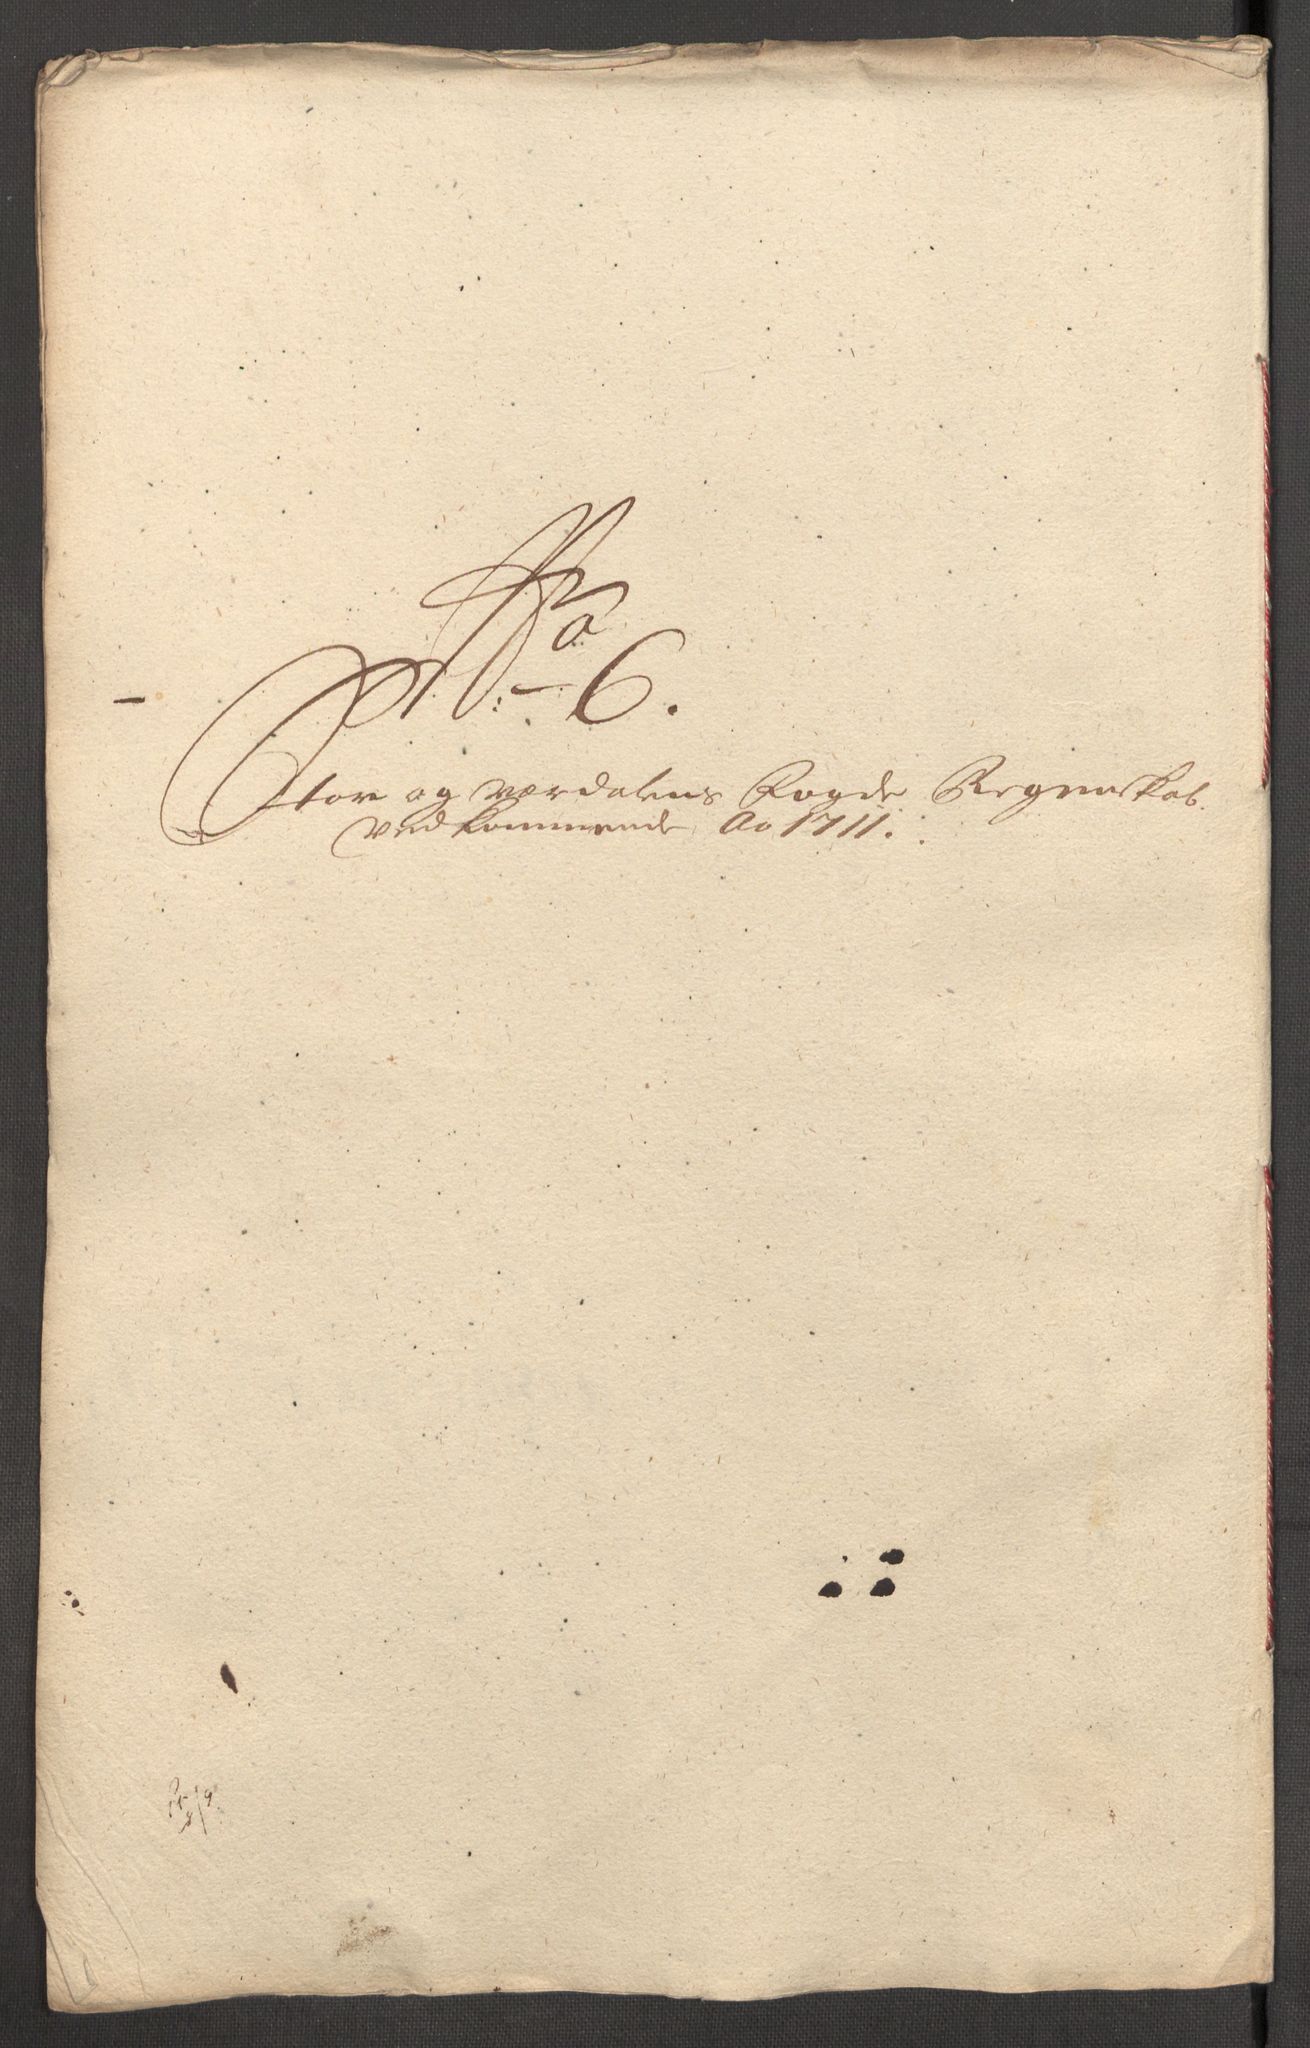 No 6.
Stør og værdalens Fogde Regenskab.
vedkommende Ao 1711.